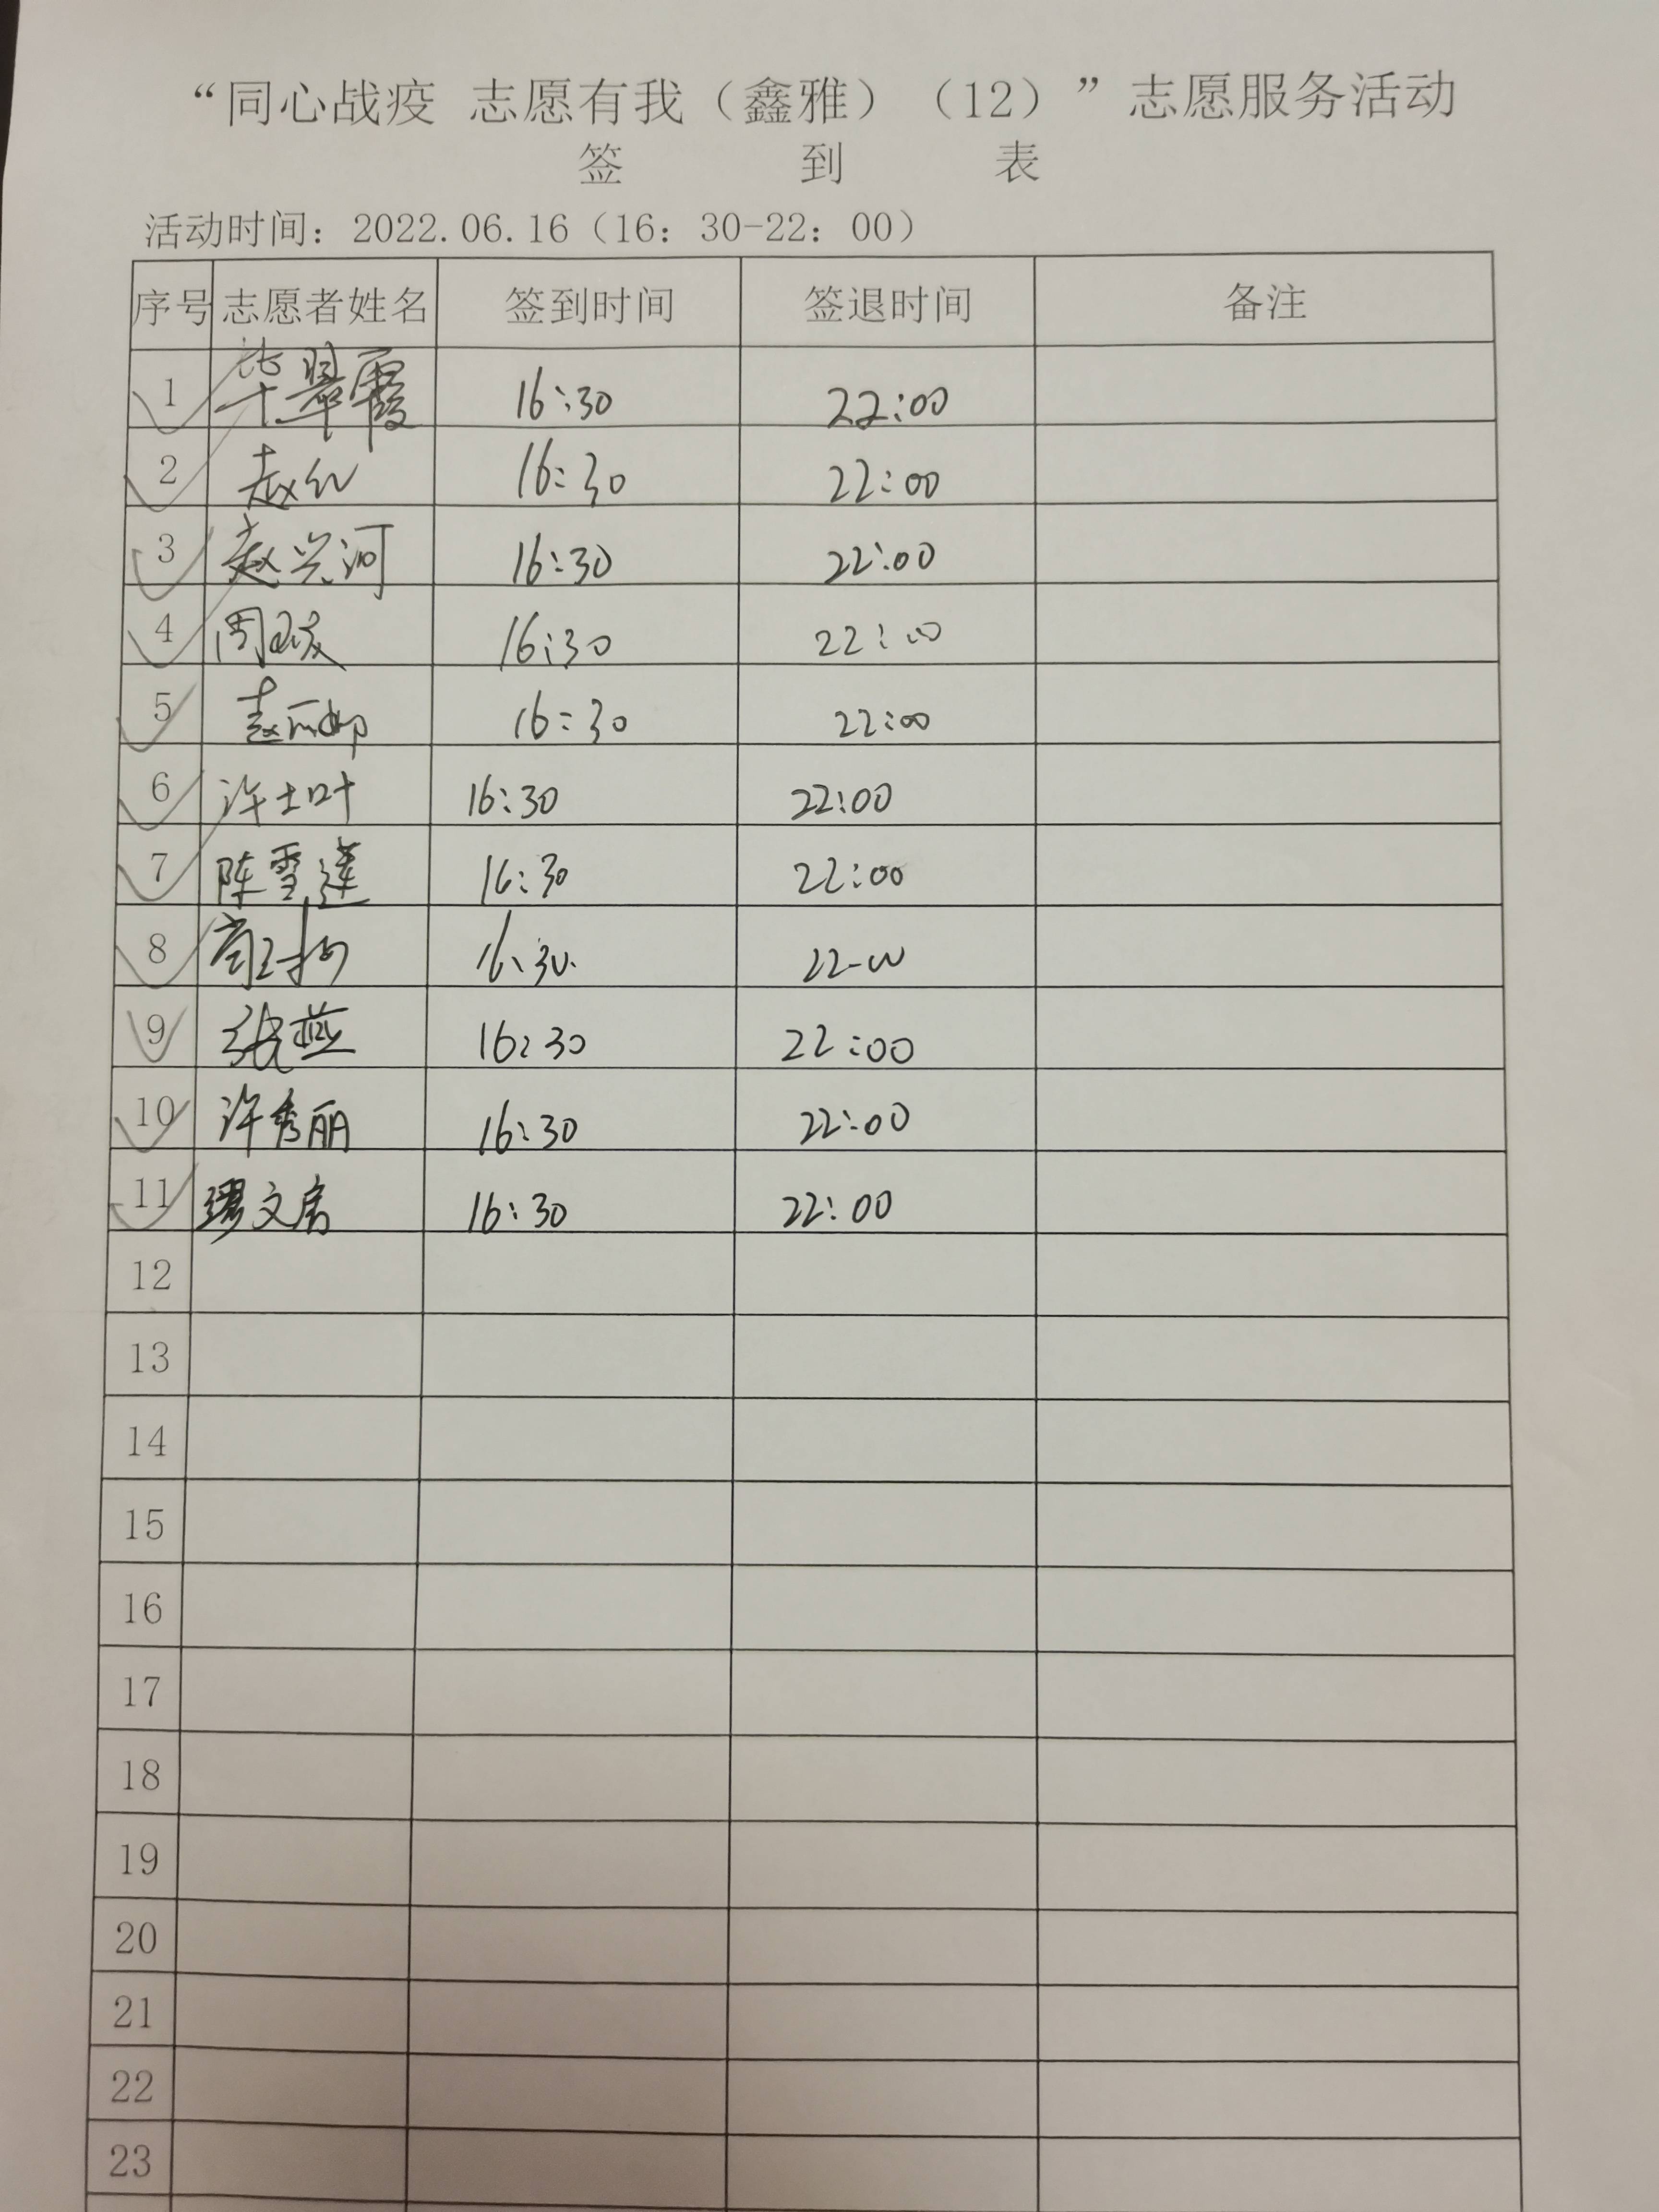 “同心战疫 志愿有我（鑫雅）（12）”志愿服务活动
签 到 表
活动时间：2022.06.16（16：30-22：00）
序号 志愿者姓名 签到时间 签退时间 备注
1 毕翠霞 16:30 22:00
2 赵红 16:30 22:00
3 赵兴河 16:30 22:00
4 周 16:30 22:00
5 赵丽娜 16:30 22:00
6 许士叶 16:30 22:00
7 陈雪莲 16:30 22:00
8 16:30 22-00
9 张燕 16:30 22:00
10 许秀丽 16:30 22:00
11 缪文房 16:30 22:00
12
13
14
15
16
17
18
19
20
21
22
23